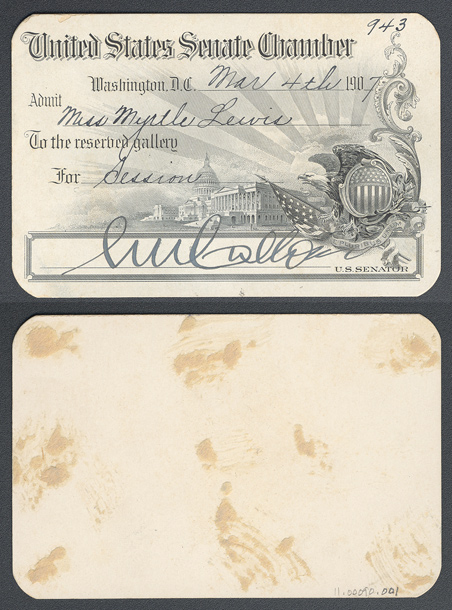 943
United States Senate Chamber
Washington, D.C. Mar 4th 1907
Admit Miss Myrtle Lewis
To the reserved gallery
For Session
U.S. SENATOR
11.00090.001